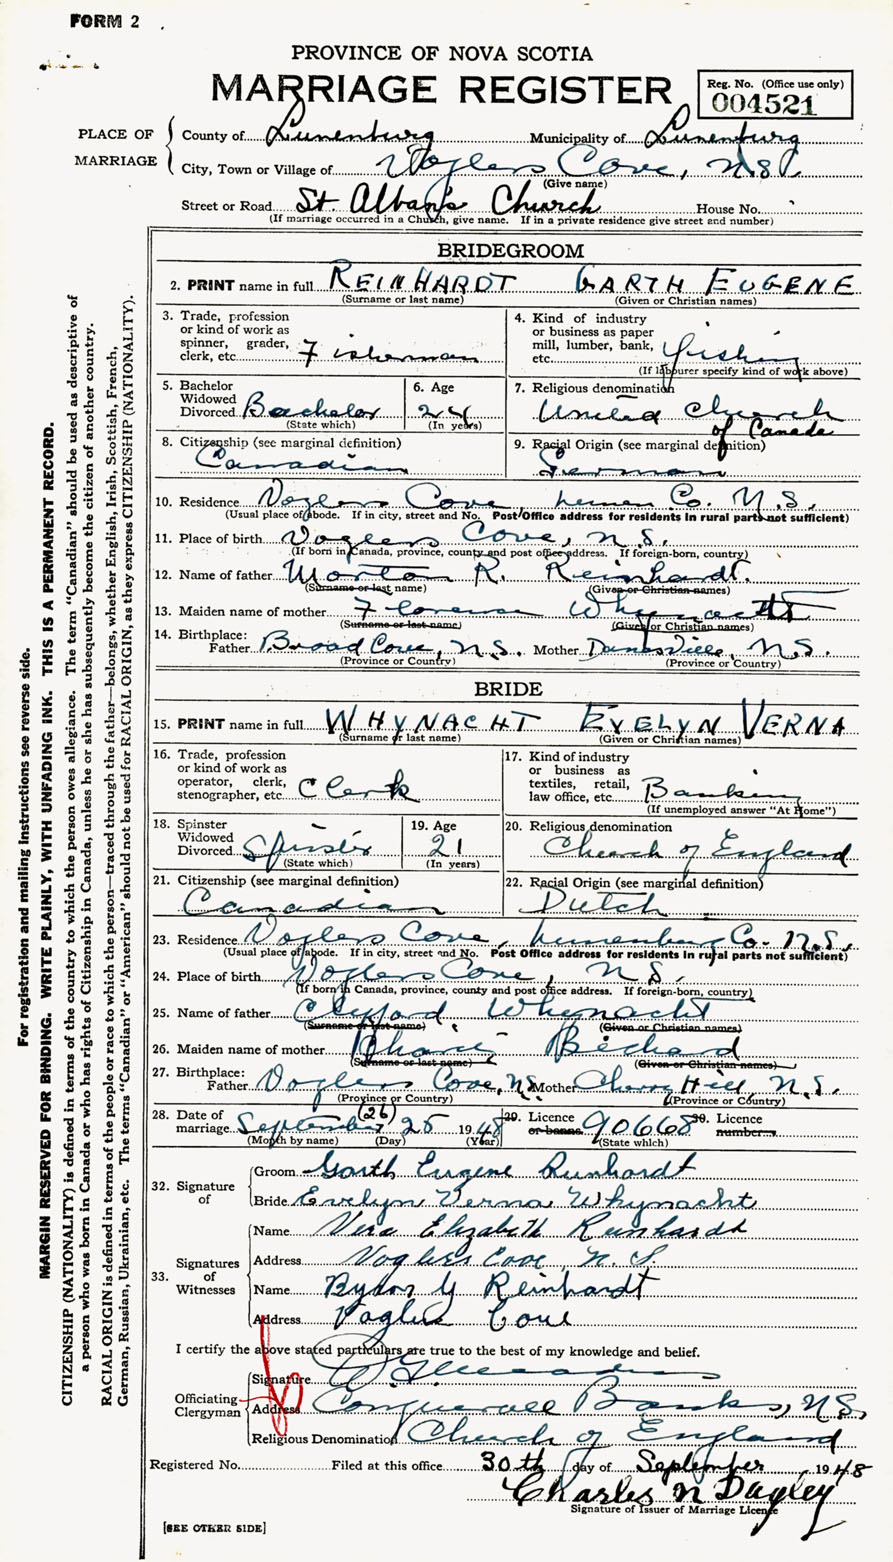 FORM 2
PROVINCE OF NOVA SCOTIA
MARRIAGE REGISTER
Reg. No. (Office use only)
004521
PLACE OF MARRIAGE
County of Lunenburg Municipality of Lunenburg
City, Town or Village of Voglers Cove, N.S.
(Give name)
Street or Road St. Alban's Church House No.
(If marriage occurred in a Church, give name. If in a private residence give street and number)
BRIDEGROOM
2. PRINT name in full REINHARDT GARTH EUGENE
(Surname or last name) (Given or Christian names)
3. Trade, profession or kind of work as spinner, grader, clerk, etc. Fisherman
4. Kind of industry or business as paper mill, lumber, bank, etc. Fishing
(If labourer specify kind of work above)
5. Bachelor Widowed Divorced Bachelor
(State which)
6. Age 24
(In years)
7. Religious denomination United Church of Canada
8. Citizenship (see marginal definition) Canadian
9. Racial Origin (see marginal definition) German
10. Residence Voglers Cove Lunen Co. N.S.
(Usual place of abode. If in city, street and No. Post Office address for residents in rural parts not sufficient)
11. Place of birth Voglers Cove, N.S.
(If born in Canada, province, county and post office address. If foreign-born, country)
12. Name of father Morton R. Reinhardt.
(Surname or last name) (Given or Christian names)
13. Maiden name of mother Florence Whynacht
(Surname or last name) (Given or Christian names)
14. Birthplace:
Father Broad Cove, N.S. Mother N.S.
(Province or Country) (Province or Country)
BRIDE
15. PRINT name in full WHYNACHT EVELYN VERNA
(Surname or last name) (Given or Christian names)
16. Trade, profession or kind of work as operator, clerk, stenographer, etc. Clerk
17. Kind of industry or business as textiles, retail, law office, etc. Banking
(If unemployed answer "At Home")
18. Spinster Widowed Divorced Spinster
(State which)
19. Age 21
(In years)
20. Religious denomination Church of England
21. Citizenship (see marginal definition) Canadian
22. Racial Origin (see marginal definition) Dutch
23. Residence Voglers Cove, Lunenburg Co. N.S.
(Usual place of abode. If in city, street and No. Post Office address for residents in rural parts not sufficient)
24. Place of birth Voglers Cove, N.S.
(If born in Canada, province, county and post office address. If foreign-born, country)
25. Name of father Clifford Whynacht
(Surname or last name) (Given or Christian names)
26. Maiden name of mother
(Surname or last name) (Given or Christian names)
27. Birthplace:
Father Voglers Cove, N.S. Mother Cherry Hill, N.S.
(Province or Country) (Province or Country)
28. Date of marriage September (26) 25 1948
(Month by name) (Day) (Year)
29. Licence or banns 90668
(State which)
30. Licence number
32. Signature of
Groom Garth Eugene Reinhardt
Bride Evelyn Verna Whynacht
33. Signatures of Witnesses
Name Vera Elizabeth Reinhardt
Address Voglers Cove, N.S.
Name Byron Y Reinhardt
Address Voglers Cove
I certify the above stated particulars are true to the best of my knowledge and belief.
Officiating Clergyman
Signature
Address Conquerall Banks, N.S.
Religious Denomination Church of England
Registered No. Filed at this office 30th day of September 1948
Charles N Dagley
Signature of Issuer of Marriage Licence
[SEE OTHER SIDE]
For registration and mailing instructions see reverse side.
MARGIN RESERVED FOR BINDING. WRITE PLAINLY, WITH UNFADING INK. THIS IS A PERMANENT RECORD.
CITIZENSHIP (NATIONALITY) is defined in terms of the country to which the person owes allegiance. The term "Canadian" should be used as descriptive of
a person who was born in Canada or who has rights of Citizenship in Canada, unless he or she has subsequently become the citizen of another country.
RACIAL ORIGIN is defined in terms of the people or race to which the person—traced through the father—belongs, whether English, Irish, Scottish, French,
German, Russian, Ukrainian, etc. The terms "Canadian" or "American" should not be used for RACIAL ORIGIN, as they express CITIZENSHIP (NATIONALITY).